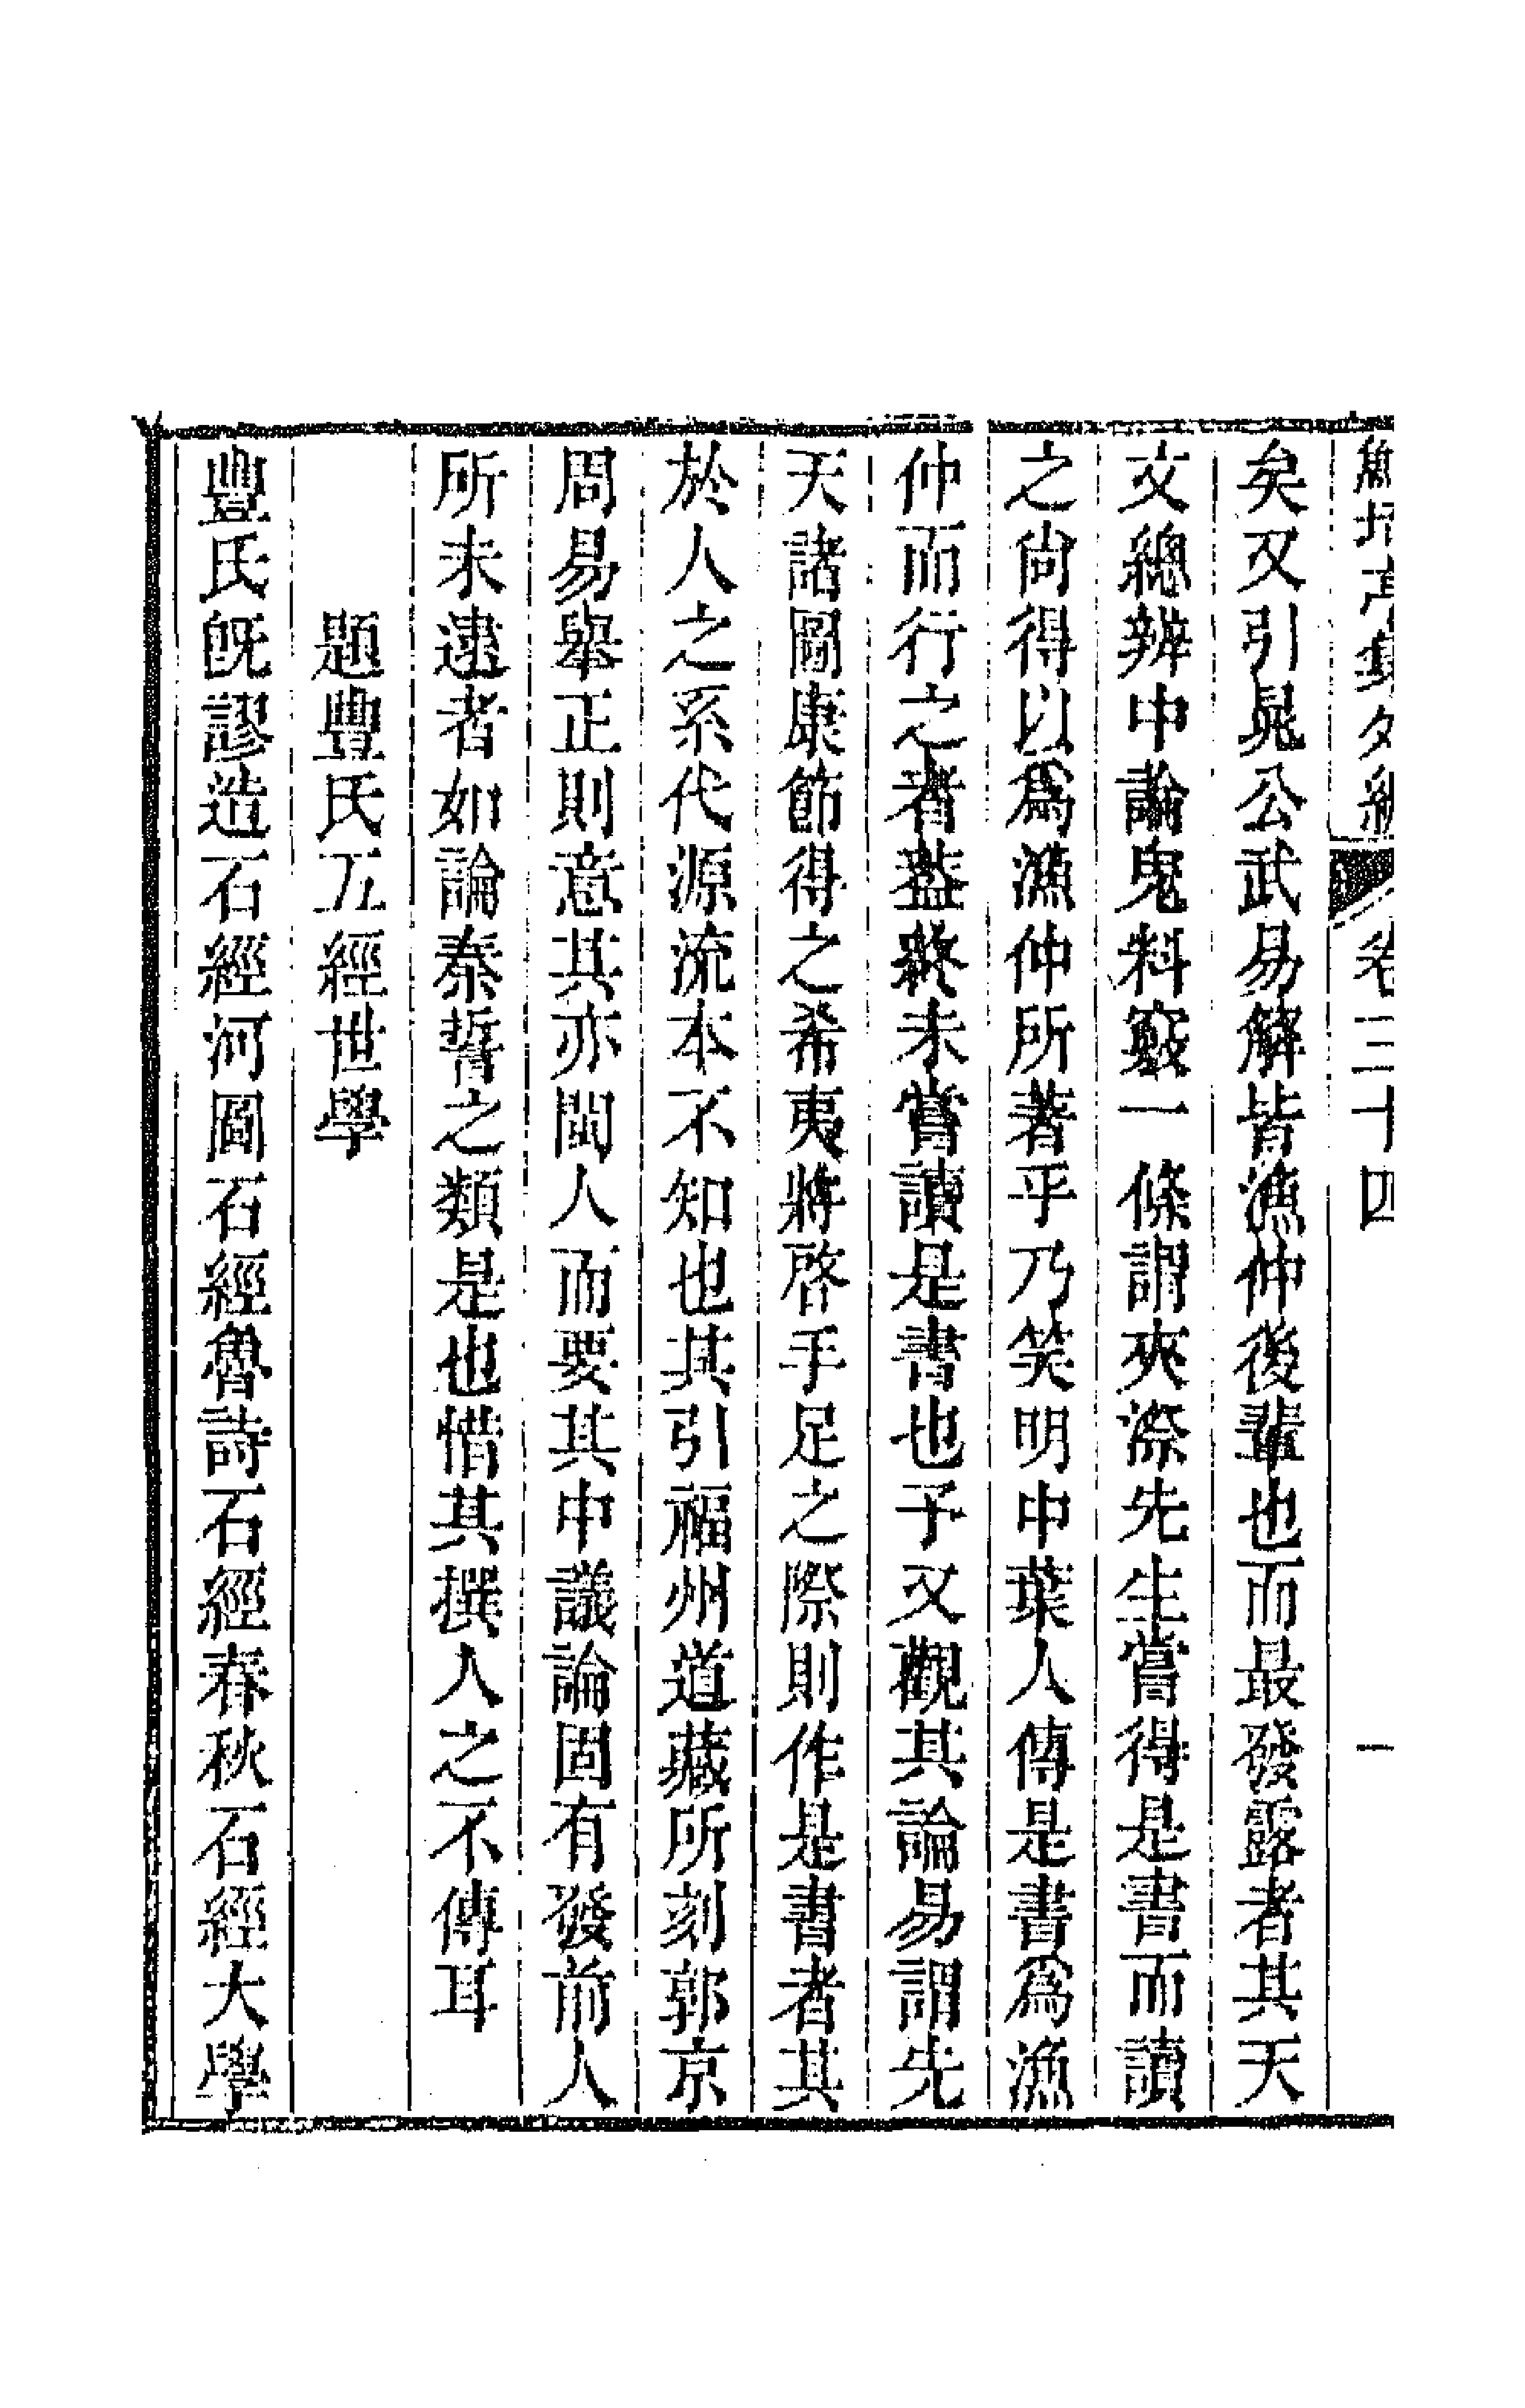 鮚埼亭集外編 卷三十四 一
矣又引晁公武易解皆漁仲後輩也而最發露者其天
文總辨中論鬼料竅一條謂夾漈先生嘗得是書而讀
之尙得以爲漁仲所著乎乃笑明中葉人傳是書爲漁
仲而行之者蓋終未嘗讀是書也予又觀其論易謂先
天諸圖康節得之希夷將啓手足之際則作是書者其
於人之系代源流本不知也其引福州道藏所刻郭京
周易舉正則意其亦閩人而要其中議論固有發前人
所未逮者如論秦誓之類是也惜其撰人之不傳耳
題豐氏五經世學
豐氏旣謬造石經河圖石經魯詩石經春秋石經大學